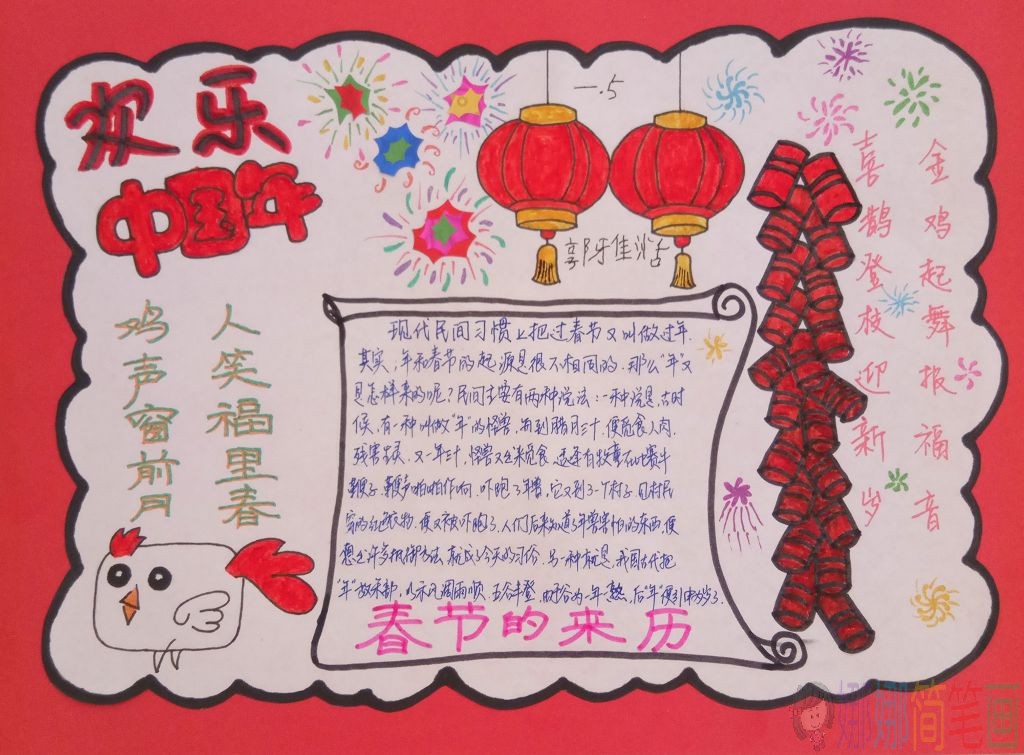 欢乐
中国年
一.5
郭佳洁
人笑福里春
鸡声窗前月
现代民间习惯上把过春节又叫做过年.
其实,年和春节的起源是很不相同的.那么"年"又
是怎样来的呢?民间主要有两种说法:一种说是,古时
候,有一种叫做"年"的怪兽,每到腊月三十,便觅食人肉,
残害.又一年三十,怪兽又出来觅食,有牧童在比赛牛
鞭子,鞭声啪啪作响,吓跑了年兽,它又到了一个村子,见村民
家的红色衣物,便又被吓跑了.人们后来知道了年兽害怕的东西,便
想出许多抵御方法,就成了今天的习俗.另一种就是,我国古代把
"年",风调雨顺,五谷丰登,一年一熟,后"年"便引申为岁了.
春节的来历
金鸡起舞报福音
喜鹊登枝迎新岁
娜娜简笔画